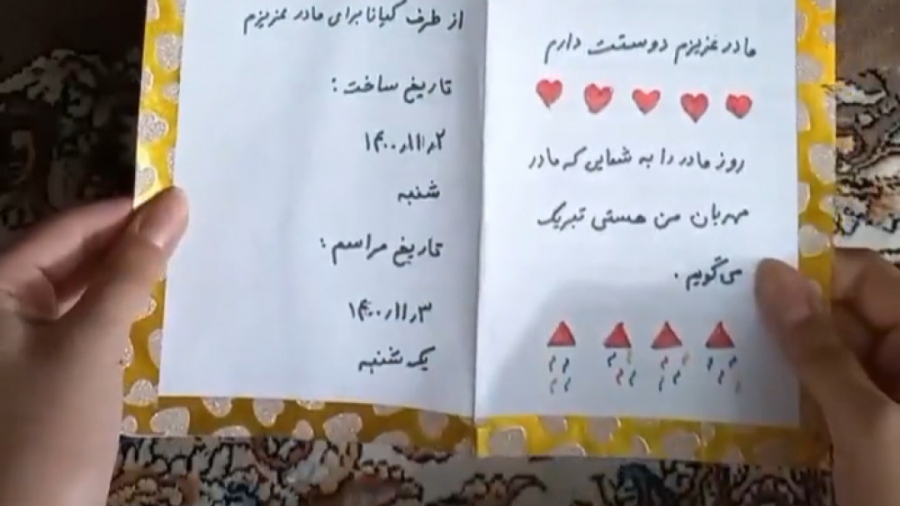 مادر عزیزم دوستت دارم
روز مادر را به شمایی که مادر
مهربان من هستی تبریک
می‌گویم.
از طرف کیانا برای مادر عزیزم
تاریخ ساخت:
۱۴۰۰٫۱۱٫۲
شنبه
تاریخ مراسم:
۱۴۰۰٫۱۱٫۳
یک شنبه